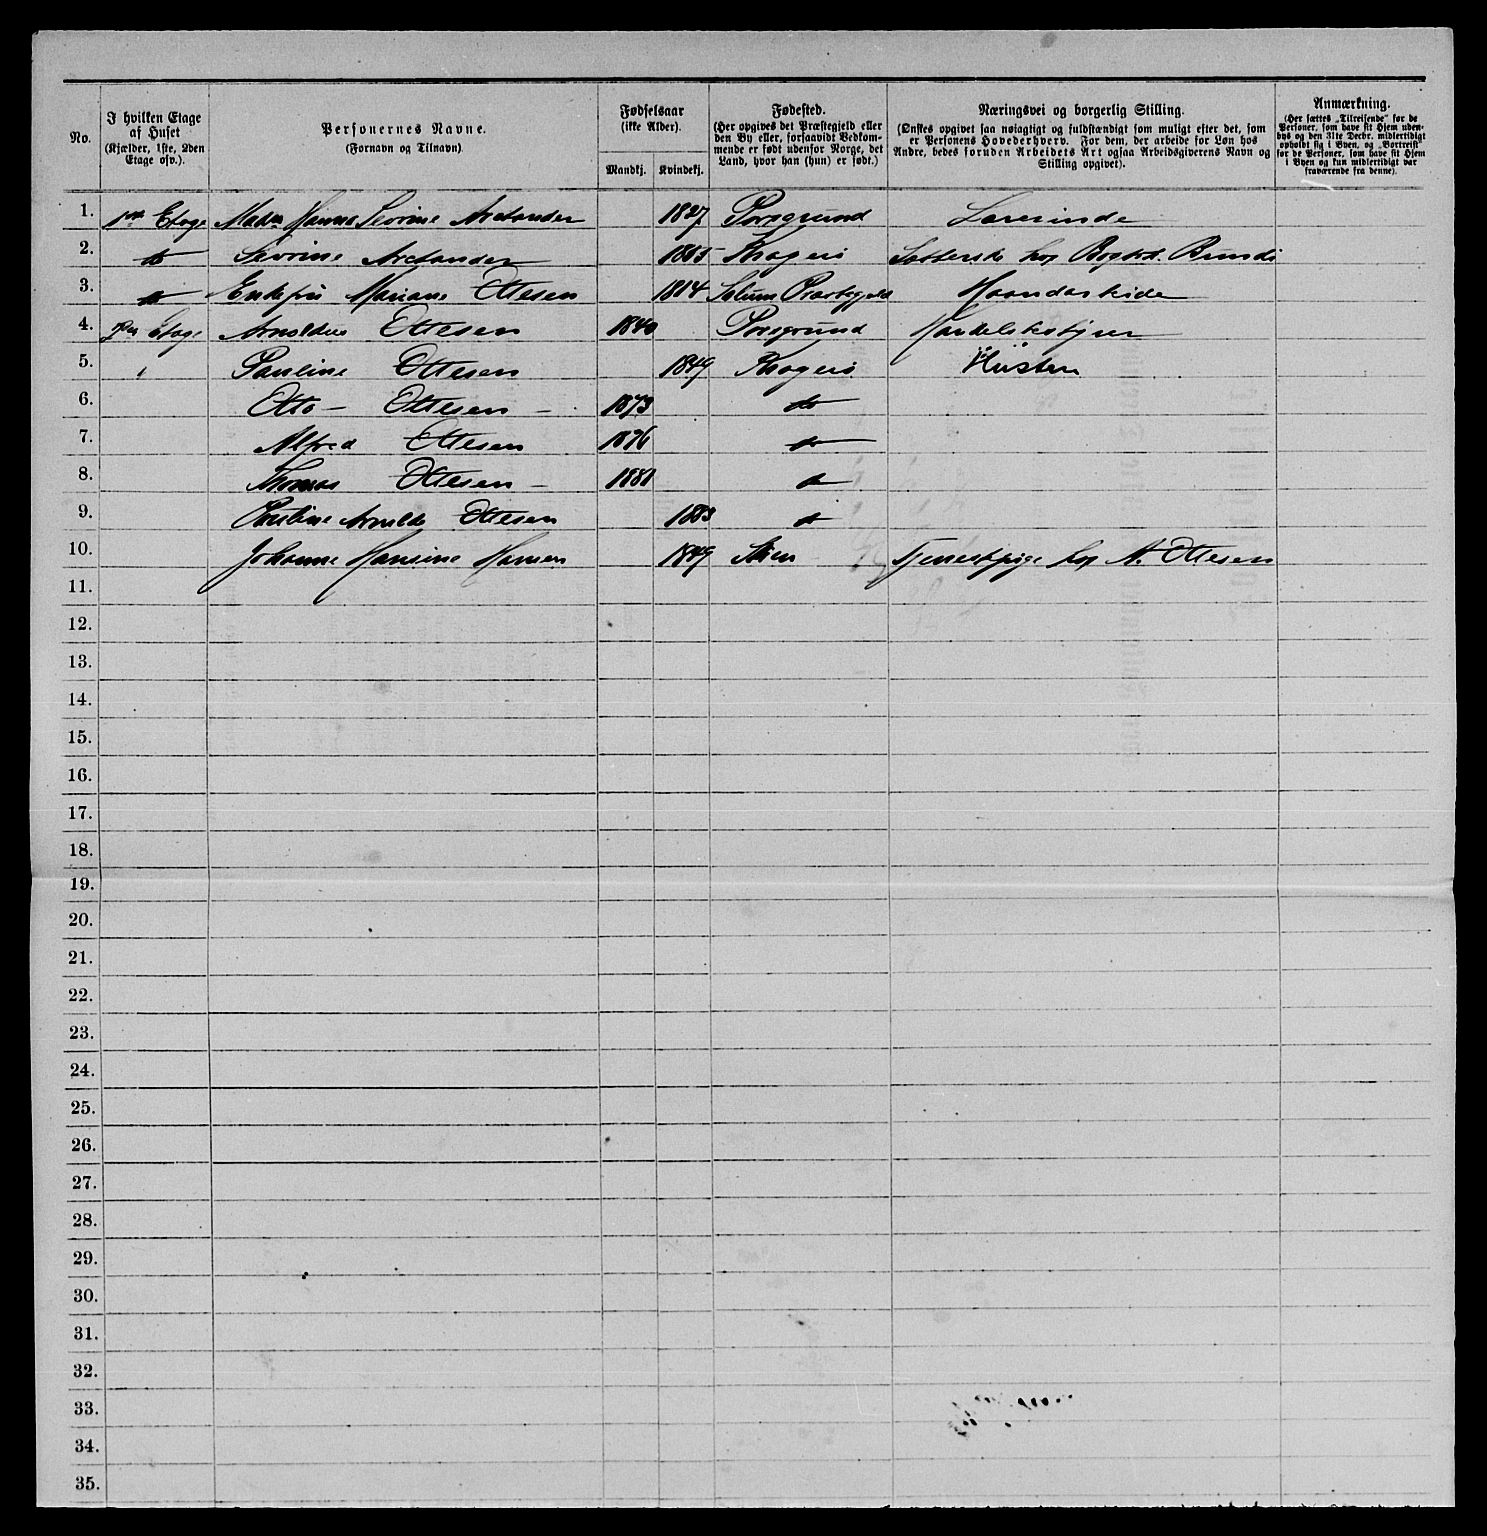 No.
I hvilken Etage af Huset (Kjælder, 1ste, 2den Etage osv.).
Personernes Navne. (Fornavn og Tilnavn).
Fødselsaar (ikke Alder).
Mandkj. Kvindekj.
Fødested. (Her opgives det Præstegjeld eller den By eller, forsaavidt Vedkommende er født udenfor Norge, det Land, hvor han (hun) er født.)
Næringsvei og borgerlig Stilling. (Ønskes opgivet saa nøiagtigt og fuldstændigt som muligt efter det, som er Personens Hovederhverv. For dem, der arbeide for Løn hos Andre, bedes foruden Arbeidets Art ogsaa Arbeidsgiverens Navn og Stilling opgivet).
Anmærkning. (Her sættes „Tilreisende" for de Personer, som have sit Hjem udenbys og den 31te Decbr. midlertidigt opholdt sig i Byen, og „Bortreist" for de Personer, som have sit Hjem i Byen og kun midlertidigt var fraværende fra denne).
1. 1ste Etage Hanna Sevrine Arctander 1827 Porsgrund Lærerinde
2. do Sevrine Arctander 1865 Kragerø hos Bogtr.
3. do Enkefru Mariane Ottesen 1814 Solum Præstegjeld Haandarbeide
4. 2den Etage Arnoldus Ottesen 1840 Porsgrund Handelsbestyrer
5. Pauline Ottesen 1849 Kragerø Hustru
6. Otto Ottesen 1873 do
7. Alfred Ottesen 1876 do
8. Thomas Ottesen 1881 do
9. Pauline Arnolda Ottesen 1883 do
10. Johanne Hansine Hansen 1849 Skien Tjenestpige hos A. Ottesen
11.
12.
13.
14.
15.
16.
17.
18.
19.
20.
21.
22.
23.
24.
25.
26.
27.
28.
29.
30.
31.
32.
33.
34.
35.